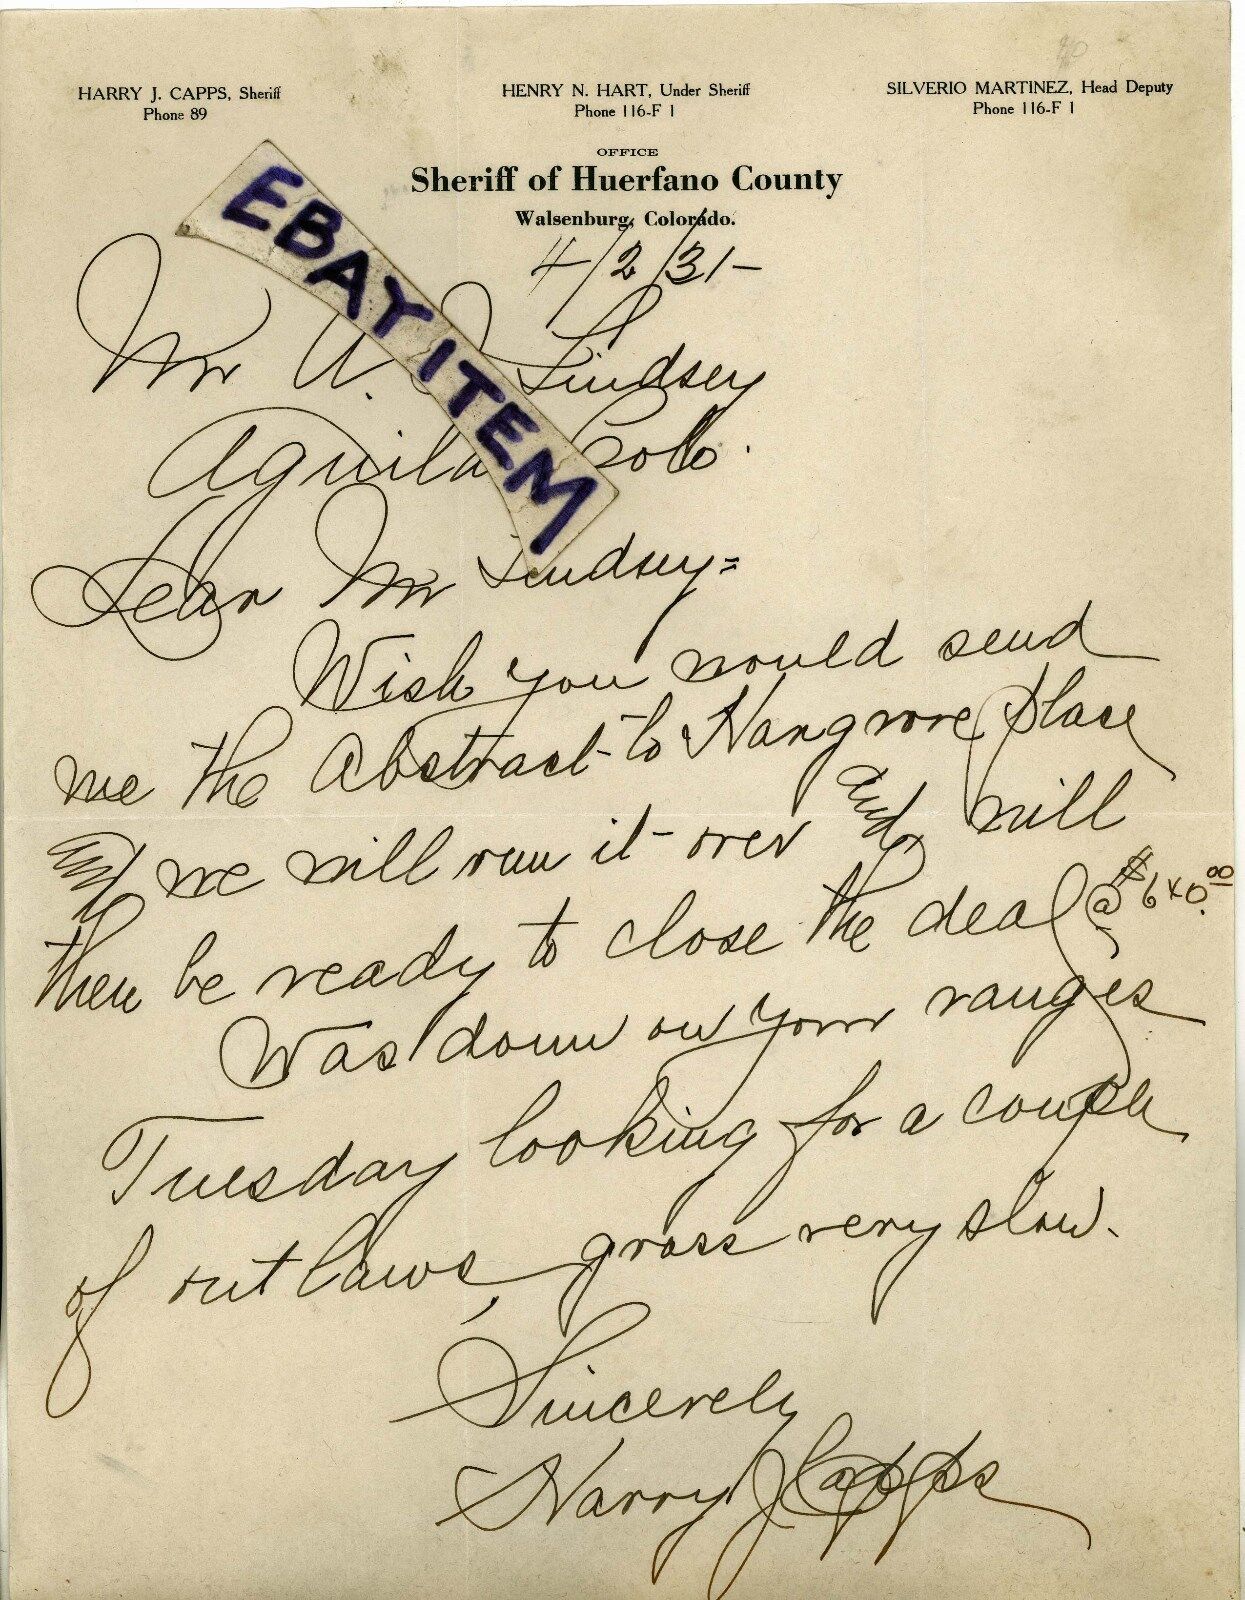 HARRY J. CAPPS, Sheriff
Phone 89
HENRY N. HART, Under Sheriff
Phone 116-F 1
SILVERIO MARTINEZ, Head Deputy
Phone 116-F 1
OFFICE
Sheriff of Huerfano County
Walsenburg, Colorado.
4/2/31-
EBAY ITEM
Mr Lindsey
Aguilar Colo.
Dear Mr Lindsey=
Wish you would send
me the Abstract to Hangrove place
and we will run it over and will
then be ready to close the deal @
Was down on your ranges
Tuesday looking for a couple
of outlaws, grass very slow.
Sincerely
Harry J Capps